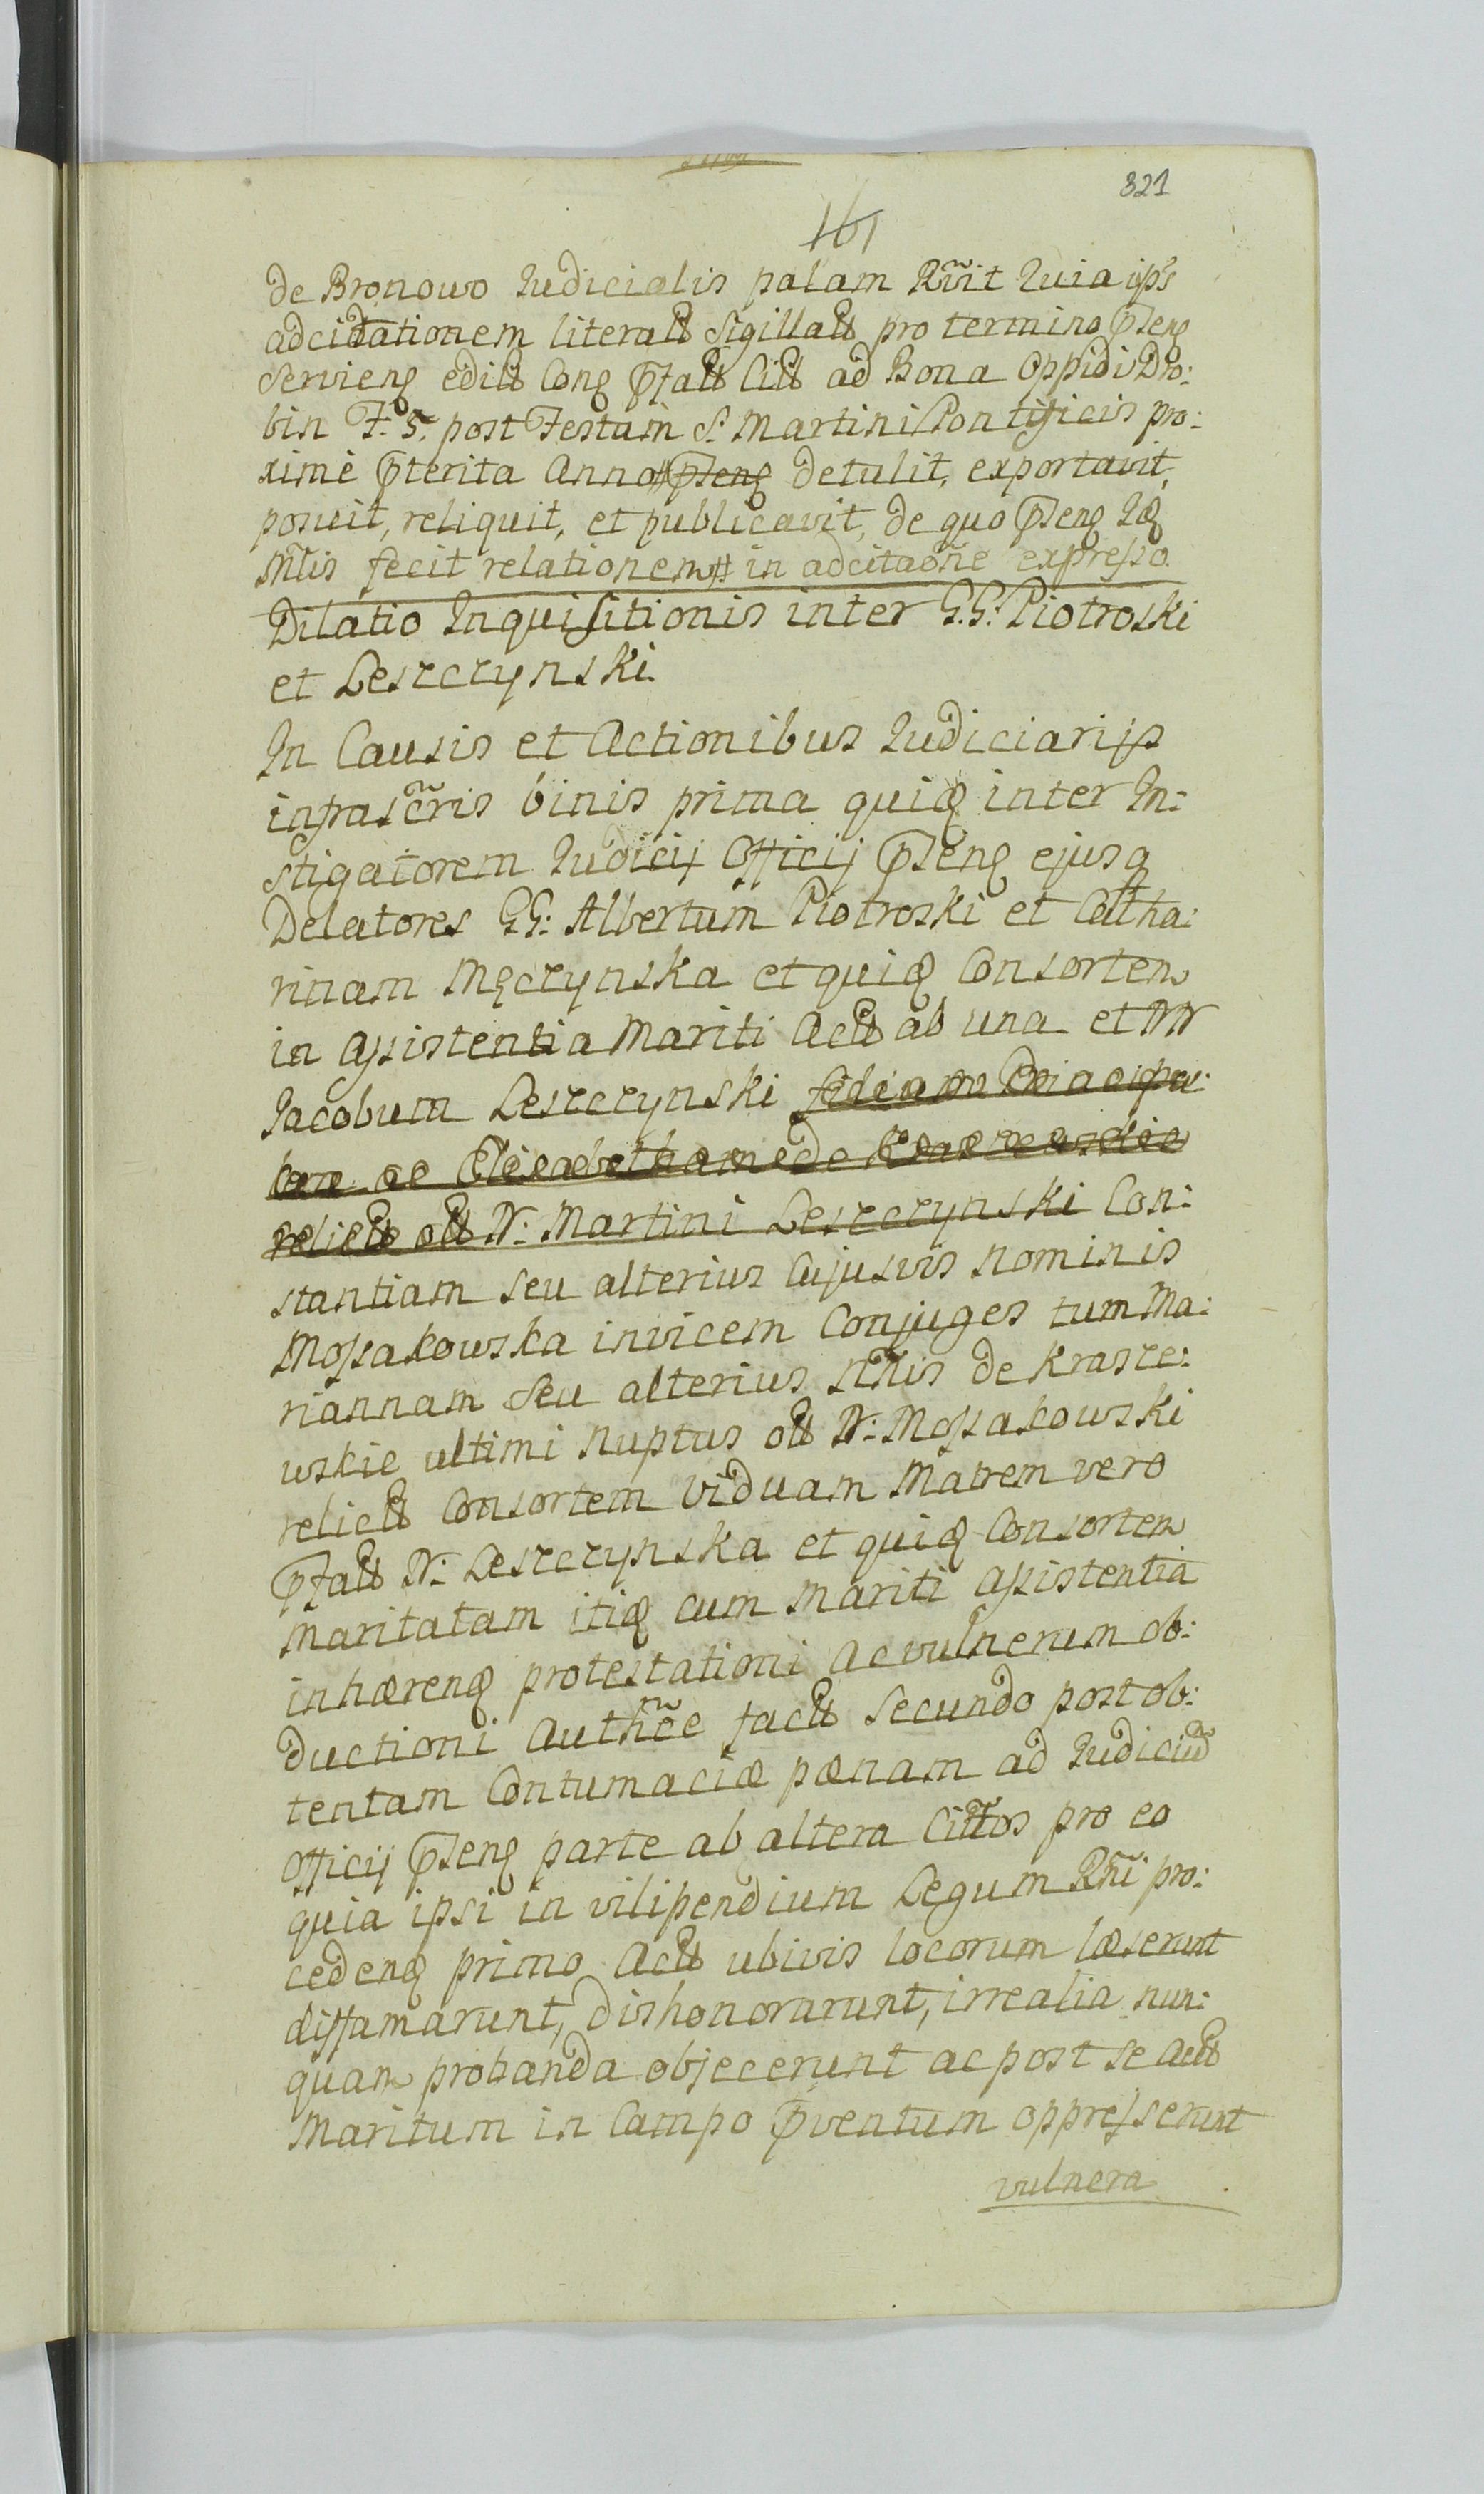 321
161
de Bronowo Judicialis palam Rñit Quia ips
adcitationem literałł Sigillałł pro termino pñseng
servieng ediłł Cong pfałł Ciłł ad Bona Oppidi Dro:
bin F. 5. post Festum S. Martini Pontificis pro:
xime pterita Anno # pseng detulit, exportavit,
posuit, reliquit, et publicavit, de quo pseng Iq
Mtis fecit relationem # in adcitaoñe expresso.
Dilatio Inquisitionis inter G.G. Piotroski
et Leszczynski.
In Causis et Actionibus Judiciarijs
infrascr̃is binis prima quiq inter In:
stigatorem Judicij Officij pseng ejusq
Delatores GG: Albertum Piotroski et Catha:
rinam Męczynska et quiq Consortem
in assistentia Mariti Acłł ab una et NN
Jacobum Leszczynski
ac Elisabetham de
relicłł ołł N: Martini Leszczynski Con:
stantiam seu alterius Cujusvis nominis
Mossakowska invicem Conjuges tum Ma:
riannam Seu alterius Nñis de Krasze:
wskie ultimi nuptus ołł N: Mossakowski
relicłł Consortem Viduam Matrem vero
pfałł N: Leszczynska et quiq Consortem
Maritatam itiq cum Mariti assistentia
inhæreng protestationi ac vulnerum ob:
ductioni Auth̃ce facłł Secundo post ob:
tentam Contumaciæ pænam ad Judiciũ
Officij pseng parte ab altera Citt̃os pro eo
quia ipsi in vilipendium Legum Rñi pro:
cedeng primo Acłł ubivis locorum læserunt
diffamarunt, dishonorarunt, irrealia nun:
quam probanda objecerunt ac post se Acłł
Maritum in Campo pventum oppresserunt
vulnera